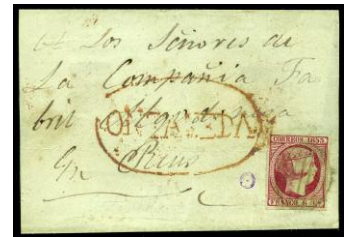 A Los Señores de
La Compañia Fa
bril Algodonera
En Reus
CORREOS 1853
FRANCO 6 Cs